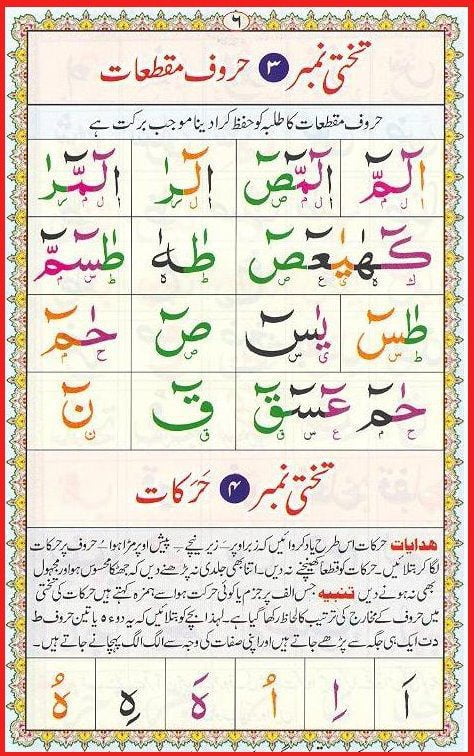 ٦
تختی نمبر ٣ حروف مقطعات
حروف مقطعات کا طلبہ کو حفظ کرا دینا موجب برکت ہے
الٓمّٓ الٓمّٓصٓ الٓرٰ الٓمّٓرٰ
كٓهٰيٰعٓصٓ طٰهٰ طٰسٓمّٓ
طٰسٓ يٰسٓ صٓ حٰمٓ
حٰمٓ عٓسٓقٓ قٓ نٓ
تختی نمبر ٤ حَرَکات
ھدایات حرکات اس طرح یاد کروائیں کہ زبر اوپر، زیر نیچے، پیش اوپر مڑا ہوا، حروف پر حرکات
لگا کر بتلائیں۔ حرکات کو قطعاً کھینچنے نہ دیں۔ اتنا بھی جلدی نہ پڑھنے دیں کہ جھٹکا محسوس ہو اور مجہول
بھی نہ ہونے دیں تنبیہ جس الف پر جزم یا کوئی حرکت ہو اسے ہمزہ کہتے ہیں حرکات کی تختی
میں حروف کے مخارج کی ترتیب کا لحاظ رکھا گیا ہے۔ لہذا بچے کو بتلائیں کہ یہ دو ء ہ یا تین حروف ط
د ت ایک ہی جگہ سے پڑھے جاتے ہیں اور اپنی صفات کی وجہ سے الگ الگ پہچانے جاتے ہیں۔
اَ اِ اُ هَ هِ هُ